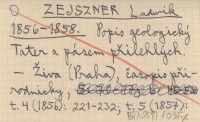 ZEJSZNER Ludwik
1856-1858. Popis geologický
Tater a pásem přilehlých.
- Živa (Praha), časopis pří-
rodnický,
t. 4 (1856): 221-232; t. 5 (1857):